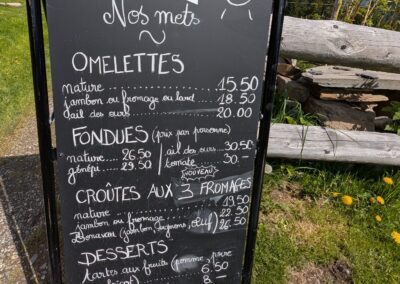 Nos mets
OMELETTES
nature 15.50
jambon ou fromage ou lard 18.50
ail des ours 20.00
FONDUES (prix par personne)
nature 26.50 ail des ours 30.50
génépi 29.50 tomate 30.—
NOUVEAU
CROÛTES AUX 3 FROMAGES
nature 19.50
jambon ou fromage 22.50
Bonaveau (jambon, oignons, œuf) 26.50
DESSERTS
tartes aux fruits (pomme, poire
6.50
8.—